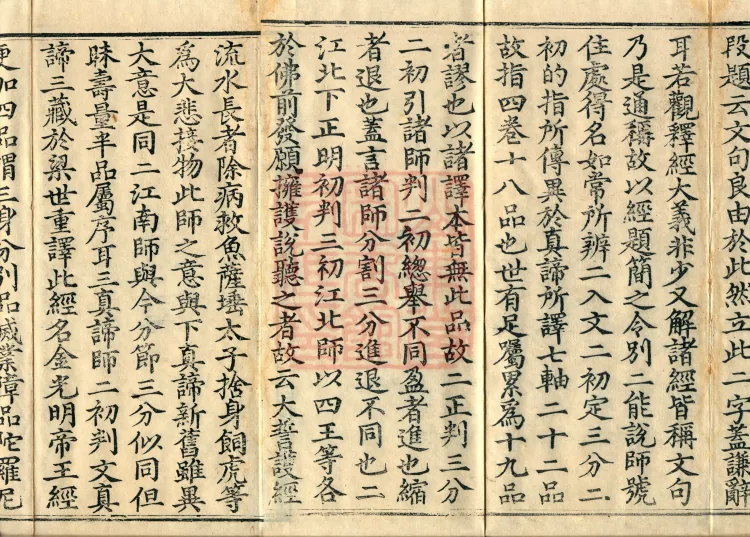 段題云文句良由於此然立此二字蓋謙辭
耳若觀釋經大義非少又解諸經皆稱文句
乃是通稱故以經題簡之令別二能說師號
住處得名如常所辨二入文二初定三分二
初的指所傳異於真諦所譯七軸二十二品
故指四卷十八品也世有足囑累為十九品
者謬也以諸譯本皆無此品故二正判三分
二初引諸師判二初總舉不同盈者進也縮
者退也蓋言諸師分割三分進退不同也二
江北下正明初判三初江北師以四王等各
於佛前發願擁護說聽之者故云大誓護經
流水長者除病救魚薩埵太子捨身飼虎等
為大悲接物此師之意與下真諦新舊雖異
大意是同二江南師與今分節三分似同但
昧壽量半品屬序耳三真諦師二初判文真
諦三藏於梁世重譯此經名金光明帝王經
更加四品謂三身分別品滅業障品陀羅尼